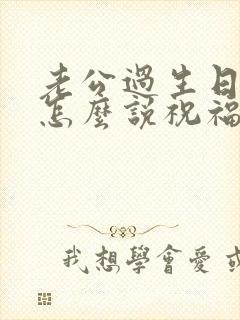 老公過生日
怎麼說祝福
我想學會愛